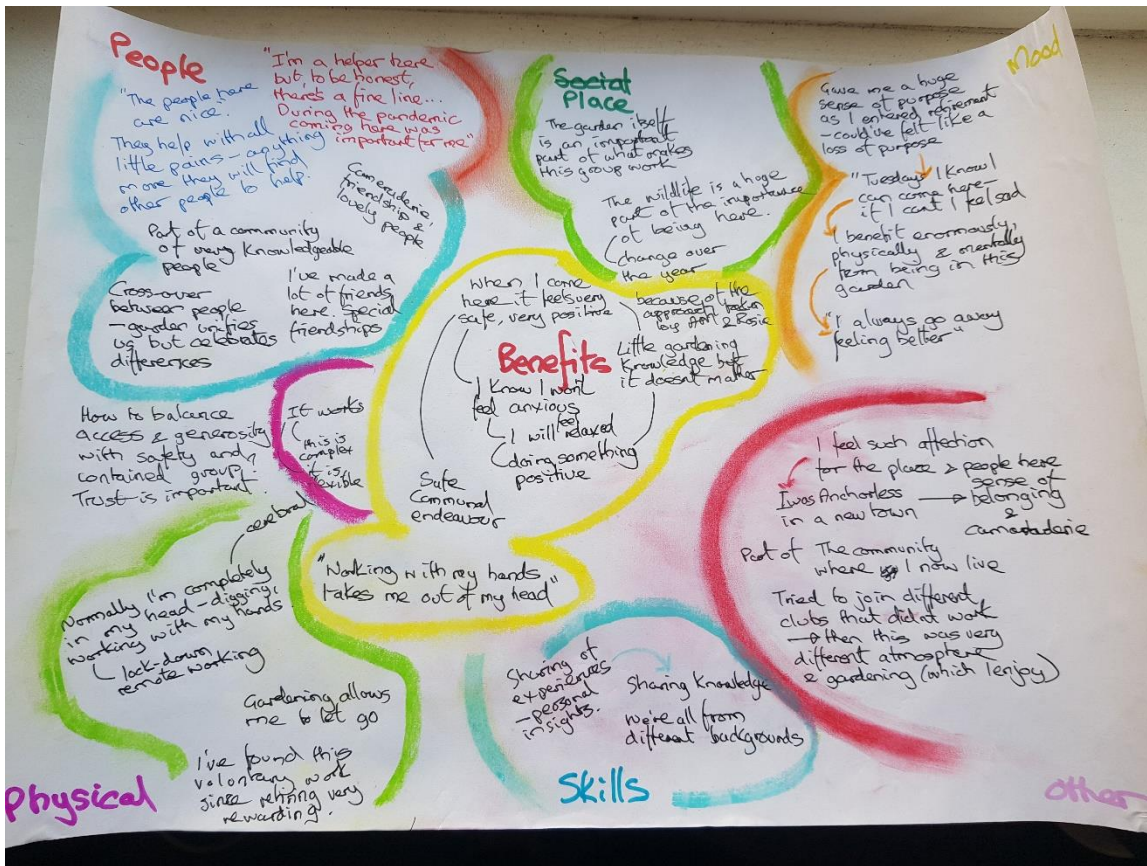 People
"The people here
are nice".
They help with all
little pains – anything
more they will find
other people to help.
"I'm a helper here
but, to be honest,
there's a fine line...
During the pandemic
coming here was
important for me"
Camaraderie,
friendship &
lovely people
Part of a community
of very knowledgeable
people
Cross-over
between people
– garden unifies
us but celebrates
differences
I've made a
lot of friends
here. Special
friendships
Social
Place
The garden itself
is an important
part of what makes
this group work
The wildlife is a huge
part of the importance
of being
here.
change over
the year
Mood
Gave me a huge
sense of purpose
as I entered retirement
– could've felt like a
loss of purpose
"Tuesdays I know I
can come here –
if I can't I feel sad
I benefit enormously,
physically & mentally
from being in this
garden
"I always go away
feeling better"
When I come
here it feels very
safe, very positive
because of the
approach taken
by & Rosie
Benefits
Little gardening
knowledge but
it doesn't matter
I know I won't
feel anxious
feel
I will relaxed
doing something
positive
Safe
communal
endeavour
"Working with my hands
takes me out of my head"
How to balance
access & generosity
with safety and
contained group?
Trust is important.
It works
this is
complex
it is
flexible
cerebral
Normally I'm completely
in my head – digging,
working with my hands.
lock-down
remote working
Gardening allows
me to let go
I've found this
voluntary work
since retiring very
rewarding.
Physical
Sharing of
experiences
– personal
insights.
Sharing Knowledge
we're all from
different backgrounds
Skills
I feel such affection
for the place & people here
I was Anchorless
in a new town
sense of
belonging
&
camaraderie
Part of The community
where I now live
Tried to join different
clubs that didn't work
then this was very
different atmosphere
& gardening (which I enjoy)
Other